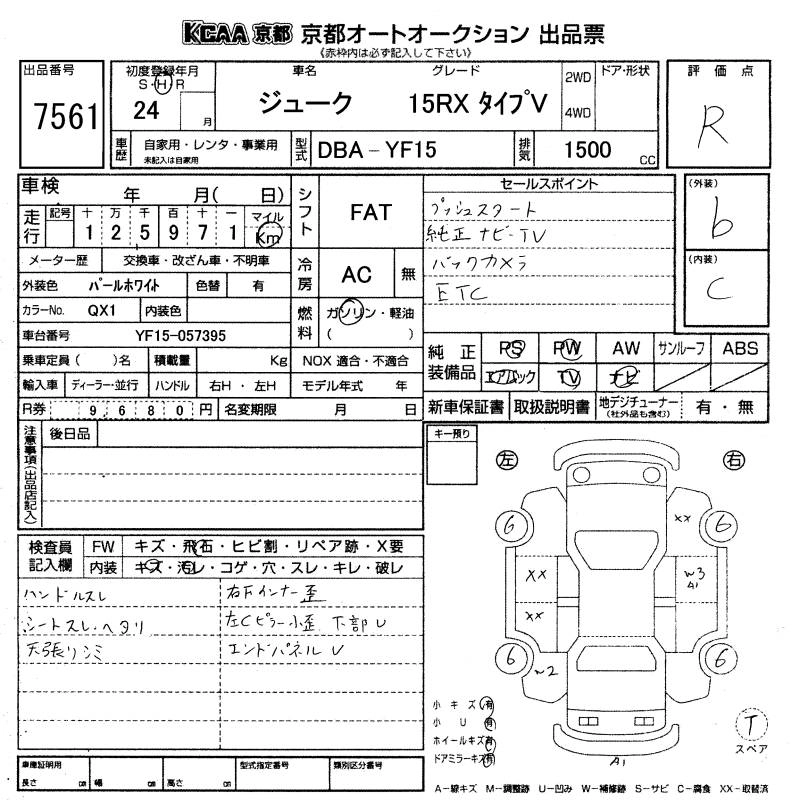 KCAA 京都 京都オートオークション 出品票
《赤枠内は必ず記入して下さい》
出品番号 7561
初度登録年月 S・H・R 24 月
車名 ジューク
グレード 15RX タイプV
2WD 4WD
ドア・形状
評価点 R
車歴 自家用・レンタ・事業用 未記入は自家用
型式 DBA－YF15
排気 1500 CC
車検 年 月( 日)
シフト FAT
セールスポイント
プッシュスタート
純正 ナビ-TV
バックカメラ
ETC
(外装) b
(内装) C
走行 記号 十 万 千 百 十 一 マイル Km
1 2 5 9 7 1
メーター歴 交換車・改ざん車・不明車
冷房 AC 無
外装色 パールホワイト 色替 有
カラーNo. QX1 内装色
燃料 ガソリン・軽油 ( )
車台番号 YF15-057395
乗車定員 ( )名 積載量 Kg NOX 適合・不適合
輸入車 ディーラー・並行 ハンドル 右H・左H モデル年式 年
R券 9,680円 名変期限 月 日
純正装備品 PS PW AW サンルーフ ABS
エアバック TV ナビ
新車保証書 取扱説明書 地デジチューナー (社外品も含む) 有・無
注意事項(出品店記入) 後日品
キー預り
左 右
検査員記入欄 FW キズ・飛石・ヒビ割・リペア跡・X要
内装 キズ・汚レ・コゲ・穴・スレ・キレ・破レ
ハンドルスレ 右Fインナー歪
シートスレ・ヘタリ 左Cピラー小歪 下部U
天張りシミ エンドパネルU
6 XX 6
XX W3 A1
XX
6 W2 6
A1
小キズ 有
小U 有
ホイールキズ 有
ドアミラーキズ 有
T スペア
車庫証明用 長さ cm 幅 cm 高さ cm 型式指定番号 類別区分番号
A－線キズ M－調整跡 U－凹み W－補修跡 S－サビ C－腐食 XX－取替済